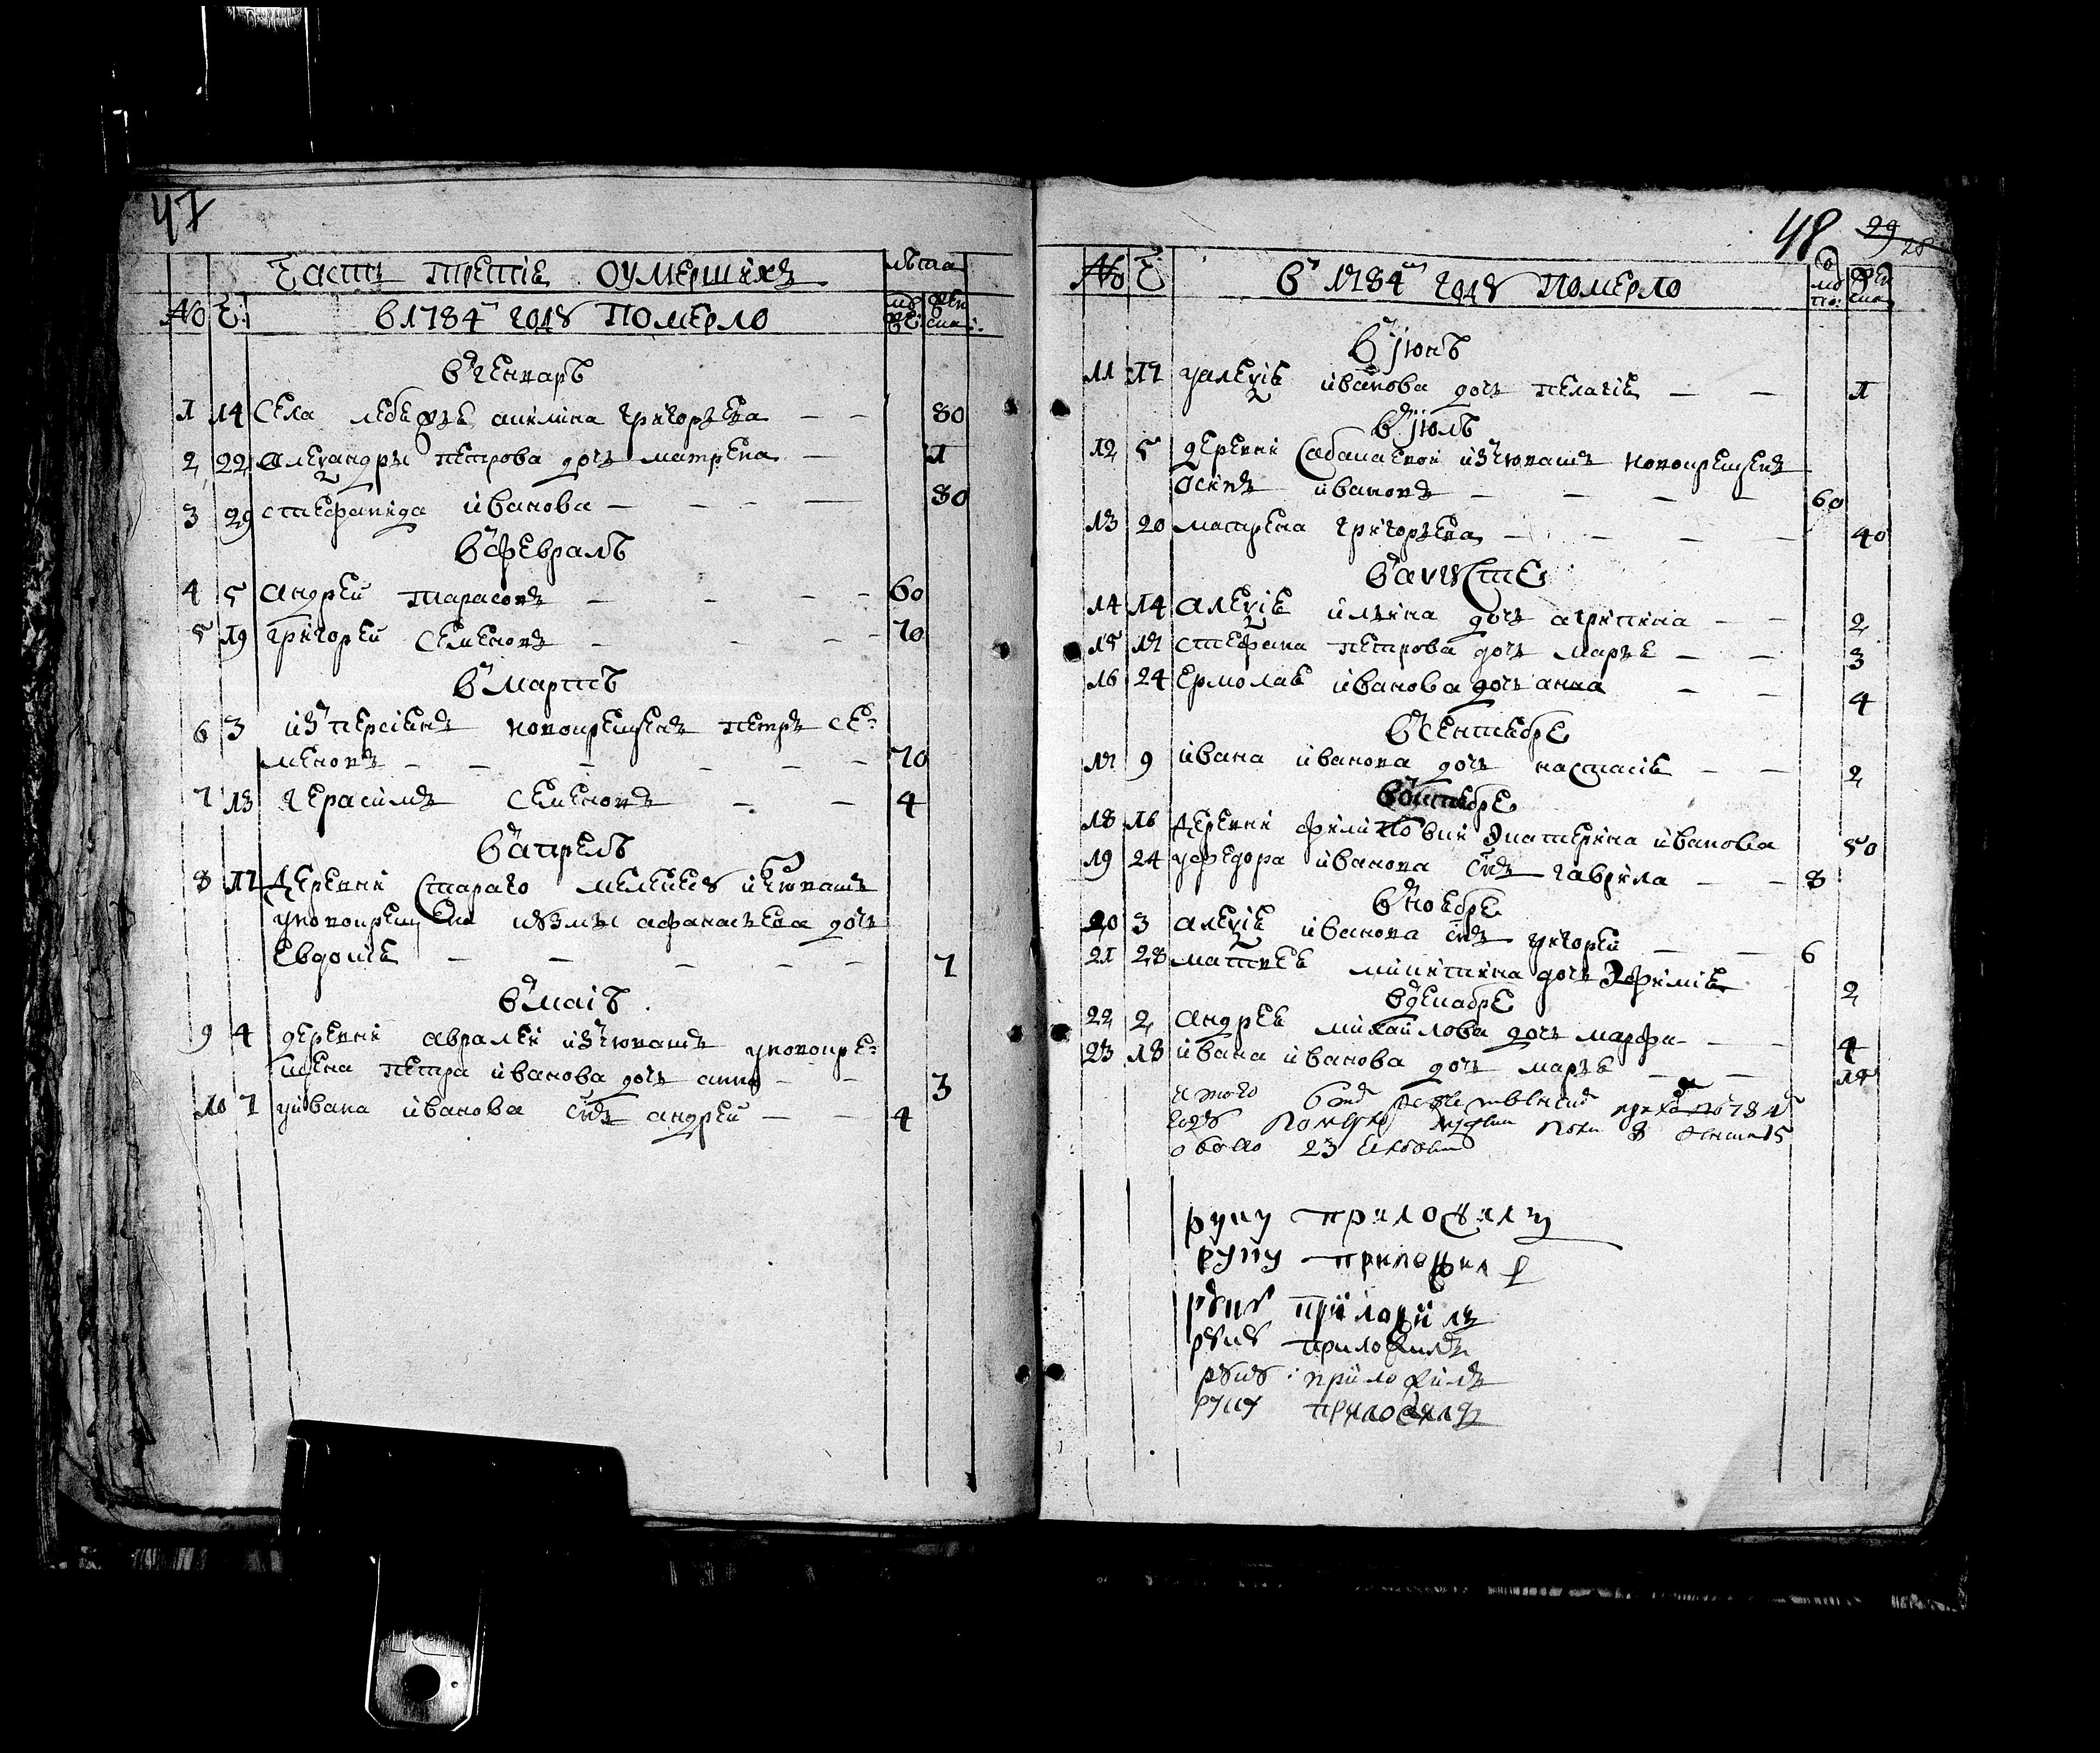 47
часть третіѧ оумершихъ лѣта
№ Ч: в 1784м году померло муж: жен:
в генварѣ
1 14 села лебѧжъѧ акилина григорьева — — 80
2 22 алеѯандры петрова дочь матрена — 1
3 29 стефанида иванова — — — 80
в февралѣ
4 5 андрей тарасовъ — — — 60
5 19 григорей семеновъ — — — 70
в мартѣ
6 3 изъ персіѧнъ новокрещенъ петръ се-
меновъ — — — — — 70
7 13 герасимъ семеновъ — — 4
в апрелѣ
8 17 деревни стараго изъ чювашъ
у новокрещена кузмы афанасьева дочь
евдокіѧ — — — — — 7
в маіѣ
9 4 деревни авралей изъ чювашъ у новокре-
щена петра иванова дочь анна — — 3
10 7 у ивана иванова сынъ андрей — — 4
48 29 28
№ Ч въ 1784м году померло муж: жен:
в июнѣ
11 17 у алеѯіѧ иванова дочь пелагіѧ — — 1
в июлѣ
12 5 деревни сабакаевой изъ чювашъ новокрещенъ
осипъ ивановъ — — — — 60
13 20 матрена григорьева — — — — 40
в августе
14 14 алеѯіѧ ильина дочь агрипина — — 2
15 17 стефана петрова дочь марьѧ — — 3
16 24 ермолаѧ иванова дочь анна — — 4
в сентѧбре
17 9 ивана иванова дочь настасіѧ — — 2
в октѧбре
18 16 деревни филиповки екатерина иванова 50
19 24 у федора иванова сынъ гаврила — — 8
в ноѧбре
20 3 алеѯіѧ иванова сынъ григорей — — 6
21 28 матвеѧ микитина дочь ефиміѧ — 2
в декабре
22 2 андреѧ михайлова дочь марфа — — 4
23 18 ивана иванова дочь марьѧ — — 17
итого
году мужеска пола 8 женска 15
обоего 23 человека
руку приложилъ
руку приложилъ
руку приложилъ
руку приложилъ
руку приложилъ
руку приложилъ